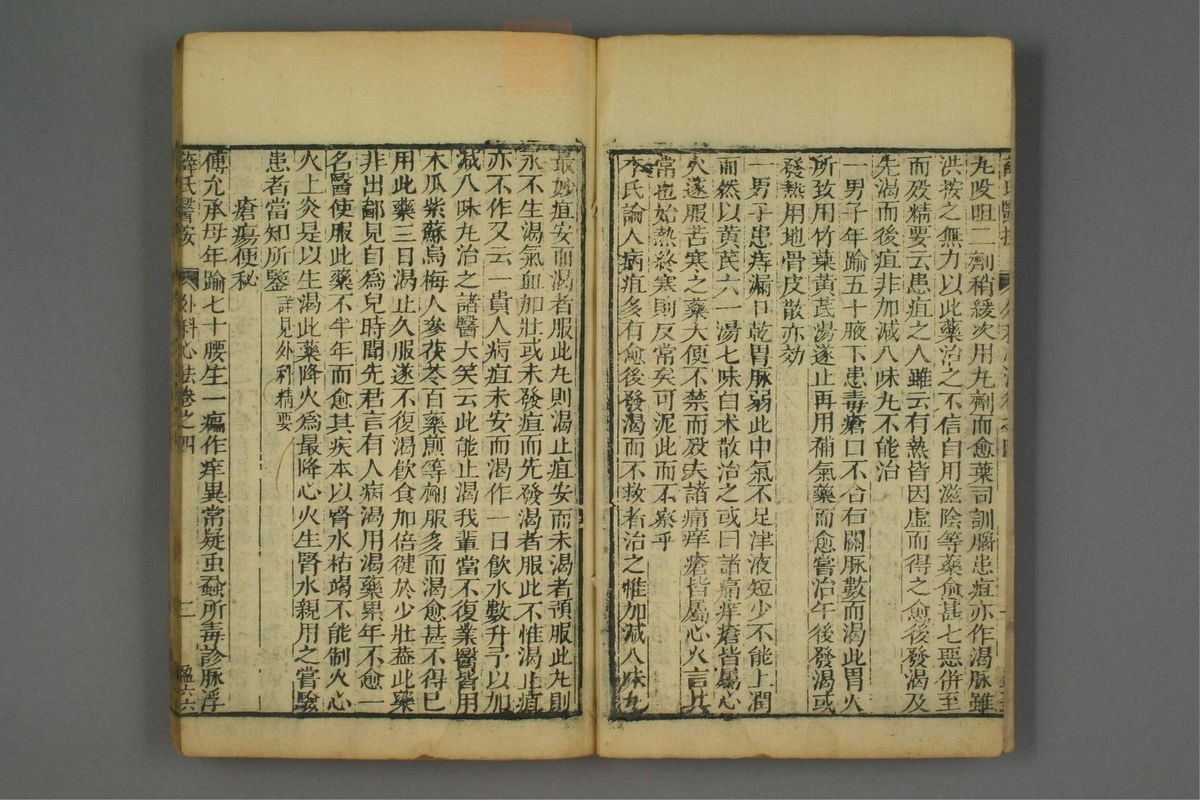 丸㕮咀二劑稍緩次用丸劑而愈葉司訓腦患疽亦作渴脉雖
洪按之無力以此藥治之不信自用滋陰等藥愈甚七惡併至
而歿精要云患疽之人雖云有熱皆因虛而得之愈後發渴及
先渴而後疽非加減八味丸不能治
一男子年踰五十腋下患毒瘡口不合右關脉數而渴此胃火
所致用竹葉黃芪湯遂止再用補氣藥而愈嘗治午後發渴或
發熱用地骨皮散亦効
一男子患痔漏口乾胃脉弱此中氣不足津液短少不能上潤
而然以黃芪六一湯七味白术散治之或曰諸痛痒瘡皆屬心
火遂服苦寒之藥大便不禁而歿夫諸痛痒瘡皆屬心火言其
常也始熱終寒則反常矣可泥此而不察乎
李氏論人病疽多有愈後發渴而不救者治之惟加減八味丸
最妙疽安而渴者服此丸則渴止疽安而未渴者預服此丸則
永不生渴氣血加壯或未發疽而先發渴者服此不惟渴止疽
亦不作又云一貴人病疽未安而渴作一日飲水數升予以加
減八味丸治之諸醫大笑云此能止渴我輩當不復業醫皆用
木瓜紫蘇烏梅人參茯苓百藥煎等劑服多而渴愈甚不得已
用此藥三日渴止久服遂不復渴飲食加倍健於少壯葢此藥
非出鄙見自爲兒時聞先君言有人病渴用渴藥累年不愈一
名醫使服此藥不半年而愈其疾本以腎水枯竭不能制火心
火上炎是以生渴此藥降火爲最降心火生腎水親用之嘗驗
患者當知所鑒詳見外科精要
瘡瘍便秘
傅允承母年踰七十腰生一瘟作痒異常疑虫蝨所毒診脉浮
薛氏醫按 外科心法卷之四 二 盈六六